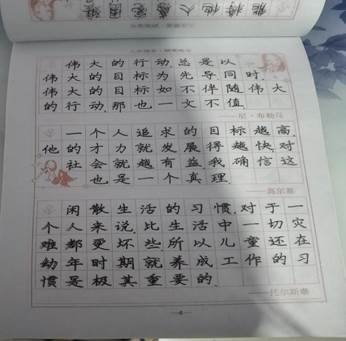 伟大的行动,总是以
伟大的目标为先导,同时,
伟大的目标如不伴随伟大
的行动,那也一文不值。
一个人追求的目标越高,
他的才力就发展得越快,对
社会就越有益,我确信这
也是一个真理。
——高尔基
闲散生活的习惯,对于一
个人来说,比生活中一切灾
难都更坏些,所以儿童还在
幼年时期就养成工作的习
惯是极其重要的。
——托尔斯泰